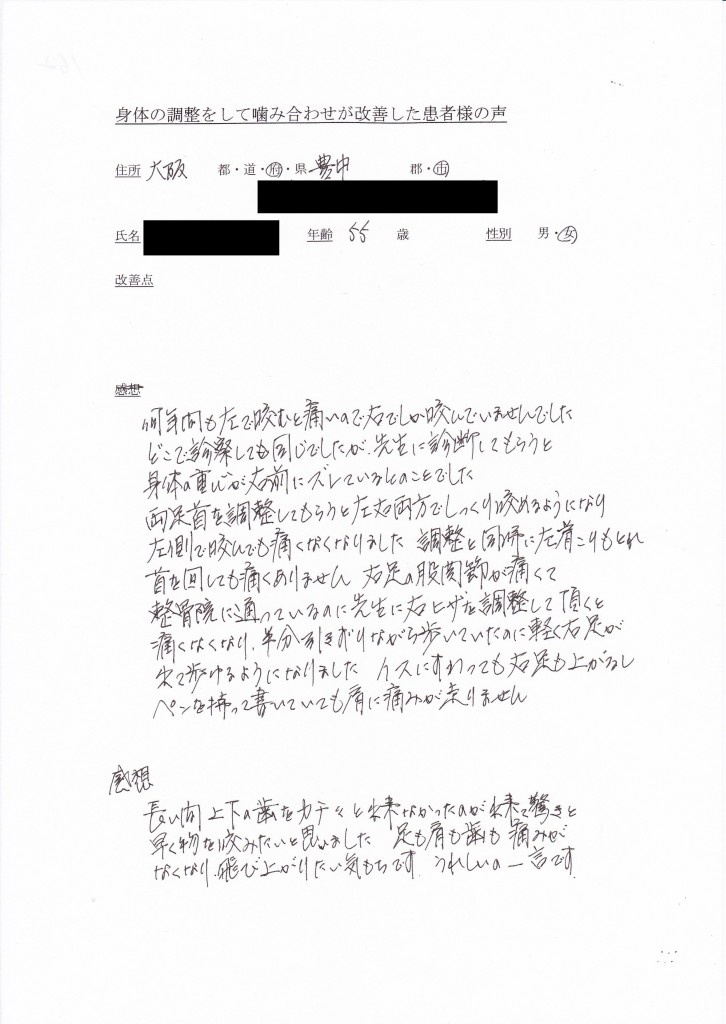 身体の調整をして噛み合わせが改善した患者様の声
住所 大阪 都・道・府・県 豊中 郡・市
氏名 年齢 55 歳 性別 男・女
改善点
感想
何年間も左で咬むと痛いので右でしか咬んでいませんでした
どこで診察しても同じでしたが、先生に診断してもらうと
身体の重心が右前にズレているとのことでした
両足首を調整してもらうと左右両方でしっくり咬めるようになり
左側で咬んでも痛くなくなりました 調整と同時に左首こりもとれ
首を回しても痛くありません 右足の股関節が痛くて
整骨院に通っているのに先生に右ヒザを調整して頂くと
痛くなくなり、半分引きずりながら歩いていたのに軽く右足が
出て歩けるようになりました イスにすわっても右足も上がるし
ペンを持って書いていても肩に痛みが走りません
感想
長い間上下の歯をカチ々と出来なかったのが出来て驚きと
早く物を咬みたいと思いました 足も肩も歯も痛みが
なくなり、飛び上がりたい気もちです うれしいの一言です